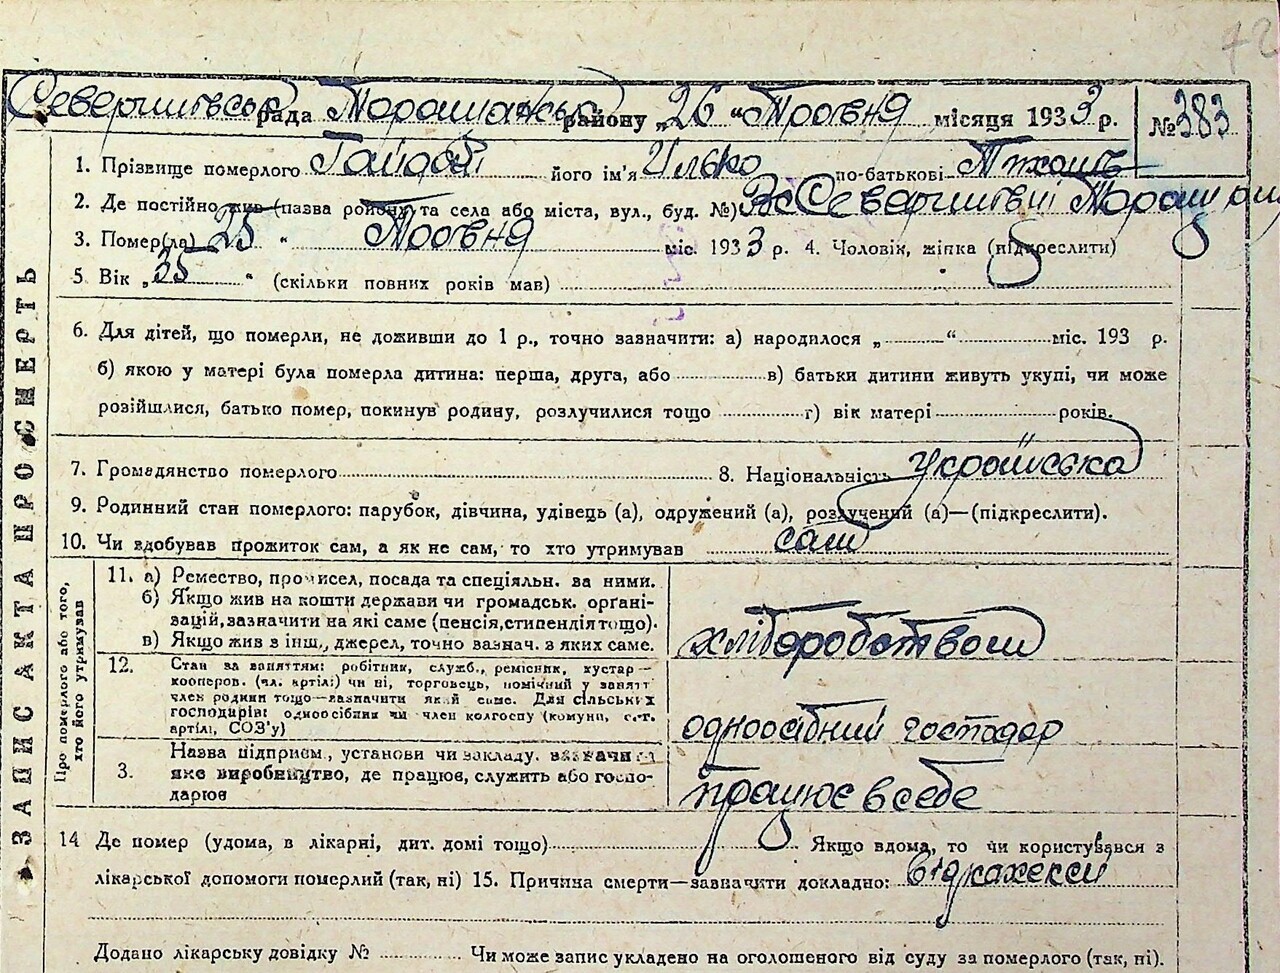 72
Северинівська рада Таращанськ району „26 “ Травня місяця 1933 р. № 383
1. Прізвище померлого Гайдай його ім'я Илько по-батькові
2. Де постійно жив (назва району та села або міста, вул., буд. №) Зс Северинівні
3. Помер(ла) 25 “ Травня міс. 1933 р. 4. Чоловік, жінка (підкреслити)
5. Вік „ 35 “ (скільки повних років мав)
6. Для дітей, що померли, не доживши до 1 р., точно зазначити: а) народилося „ “ міс. 193 р.
б) якою у матері була померла дитина: перша, друга, або в) батьки дитини живуть укупі, чи може
розійшлися, батько помер, покинув родину, розлучилися тощо г) вік матері років.
7. Громадянство померлого 8. Національність Українська
9. Родинний стан померлого: парубок, дівчина, удівець (а), одружений (а), розлучений (а)—(підкреслити).
10. Чи здобував прожиток сам, а як не сам, то хто утримував сам
ЗАПИС АКТА ПРО СМЕРТЬ
Про померлого або того,
хто його утримував
11. а) Ремество, промисел, посада та спеціяльн. за ними.
б) Якщо жив на кошти держави чи громадськ. орґані-
зацій, зазначити на які саме (пенсія, стипендія тощо).
в) Якщо жив з інш., джерел, точно зазнач. з яких саме.
хліборобством
12. Стан за заняттям: робітник, служб., ремісник, кустар—
кооперов. (чл. артілі) чи ні, торговець, помічний у занятт
член родини тощо—зазначити який саме. Для сільських
господарів: одноосібник чи член колгоспу (комуни, с.-г.
артілі, СОЗ'у)
одноосібний господар
3. Назва підприєм., установи чи закладу, зазначи
яке виробництво, де працює, служить або госпо-
дарює
працює в себе
14 Де помер (удома, в лікарні, дит. домі тощо) Якщо вдома, то чи користувався з
лікарської допомоги померлий (так, ні) 15. Причина смерти—зазначити докладно: від кахексиї
Додано лікарську довідку № Чи може запис укладено на оголошеного від суду за померлого (так, ні).